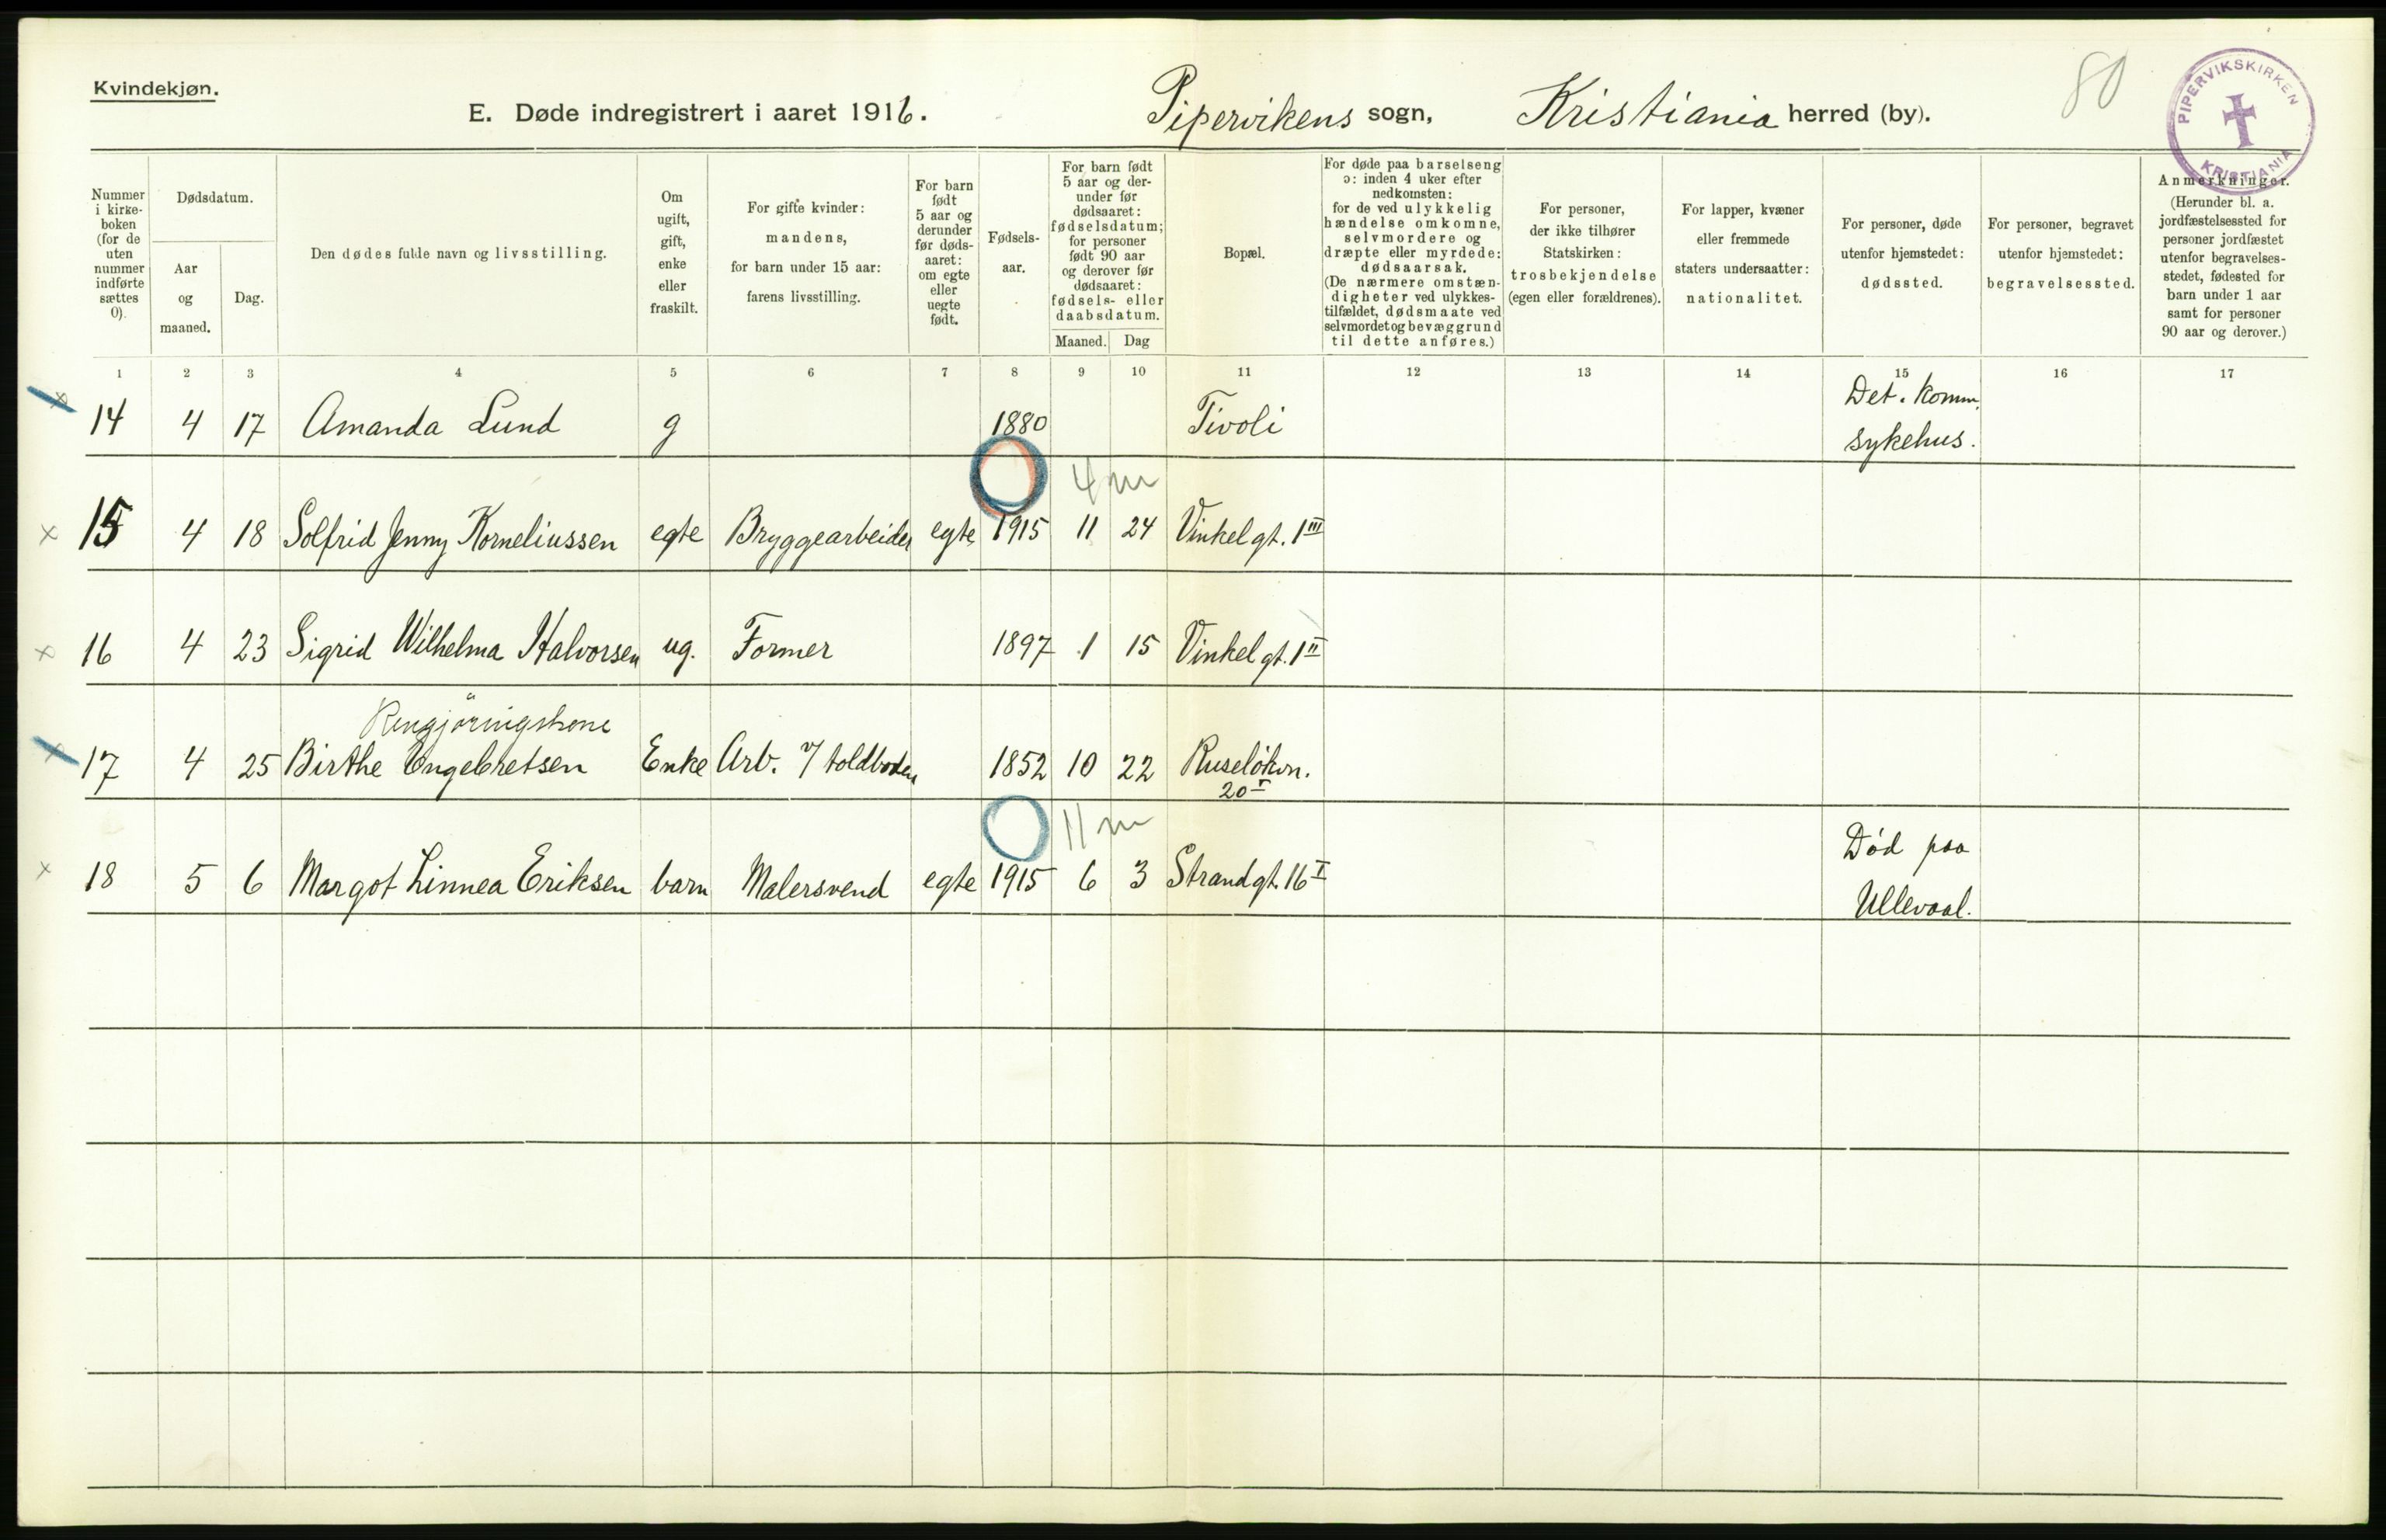 Kvindekjøn.
E. Døde indregistrert i aaret 1916.
Pipervikens sogn, Kristiania herred (by).
80
PIPERVIKSKIRKEN
KRISTIANIA
Nummer
i kirke-
boken
(for de
uten
nummer
indførte
sættes
0).
Dødsdatum.
Aar
og
maaned.
Dag.
Den dødes fulde navn og livsstilling.
Om
ugift,
gift,
enke
eller
fraskilt.
For gifte kvinder:
mandens,
for barn under 15 aar:
farens livsstilling.
For barn
født
5 aar og
derunder
før døds-
aaret:
om egte
eller
uegte
født.
Fødsels-
aar.
For barn født
5 aar og der-
under før
dødsaaret:
fødselsdatum;
for personer
født 90 aar
og derover før
dødsaaret:
fødsels- eller
daabsdatum.
Maaned. Dag
Bopæl.
For døde paa barselseng
ɔ: inden 4 uker efter
nedkomsten:
for de ved ulykkelig
hændelse omkomne,
selvmordere og
dræpte eller myrdede:
dødsaarsak.
(De nærmere omstæn-
digheter ved ulykkes-
tilfældet, dødsmaate ved
selvmord et og bevæggrund
til dette anføres.)
For personer,
der ikke tilhører
Statskirken:
trosbekjendelse
(egen eller forældrenes).
For lapper, kvæner
eller fremmede
staters undersaatter:
nationalitet.
For personer, døde
utenfor hjemstedet:
dødssted.
For personer, begravet
utenfor hjemstedet:
begravelsessted.
Anmerkninger.
(Herunder bl. a.
jordfæstelsessted for
personer jordfæstet
utenfor begravelses-
stedet, fødested for
barn under 1 aar
samt for personer
90 aar og derover.)
1 2 3 4 5 6 7 8 9 10 11 12 13 14 15 16 17
x 14 4 17 Amanda Lund g 1880 Tivoli Det. komm.
sykehus.
4 m
x 15 4 18 Solfrid Jenny Korneliussen egte Bryggearbeider egte 1915 11 24 Vinkelgt. 1 III
x 16 4 23 Sigrid Wilhelma Halvorsen ug. Former 1897 1 15 Vinkelgt. 1 II
Rengjøringskone
x 17 4 25 Birthe Engebretsen Enke Arb. v/ toldboden 1852 10 22 Ruseløkvn.
20 I
11 m
x 18 5 6 Margot Linnea Eriksen barn Malersvend egte 1915 6 3 Strandgt. 16 I Død paa
Ullevaal.